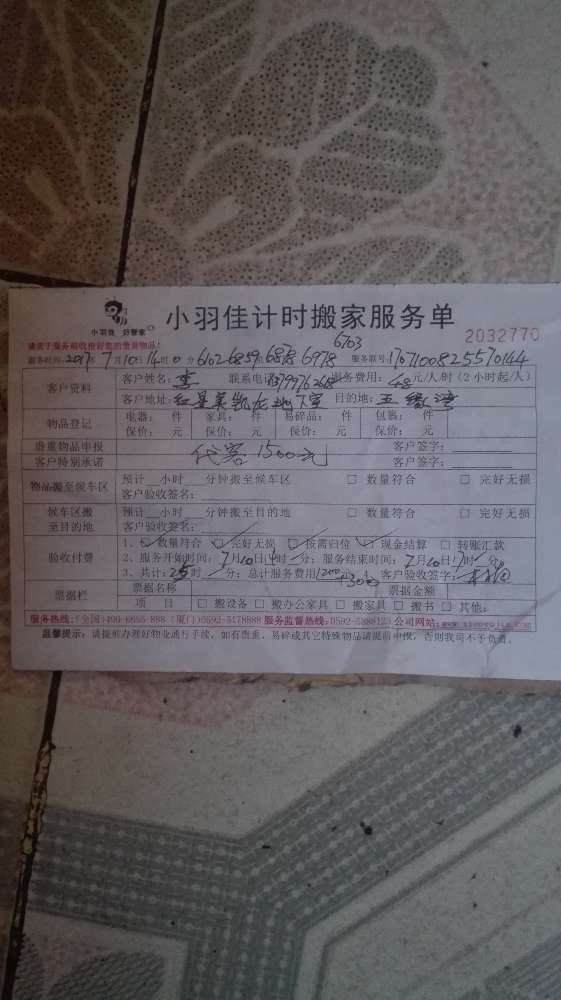 小羽佳 好管家
小羽佳计时搬家服务单
2032770
请放于服务箱收拾好您的贵重物品!
6703
服务时间:2017年7月10日14时0分 6102 6859 6878 6978 服务联号:1707100825570144
客户资料 客户姓名:李 联系电话 服务费用:48元/人/时(2小时起/人)
客户地址:红星美凯龙地下室 目的地:五缘湾
物品登记 电器: 件 家具: 件 易碎品: 件 包裹: 件
保价: 元 保价: 元 保价: 元 保价: 元
贵重物品申报 代客1500元 客户签字:
客户特别承诺 客户签字:
物品搬至候车区 预计__小时__分钟搬至候车区 □ 数量符合 □ 完好无损
客户验收签名:
候车区搬至目的地 预计__小时__分钟搬至目的地 □ 数量符合 □ 完好无损
客户验收签名:
验收付费 1、□ 数量符合 □ 完好无损 □ 按需归位 □ 现金结算 □ 转账汇款
2、服务开始时间:7月10日14时 分;服务结束时间:7月10日17时 分
3、共计:25时 分;总计服务费用1200 客户验收签字:
票据栏 票据名称 票据金额
项 目 □ 搬设备 □ 搬办公家具 □ 搬家具 □ 搬书 □ 其他:
服务热线:(全国)400-6655-888 (厦门)0592-5178888 服务监督热线:0592-5888123 公司网站:
温馨提示:请提前办理好物业通行手续。如有贵重、易碎或其它特殊物品请提前申报,否则我司不予负责。